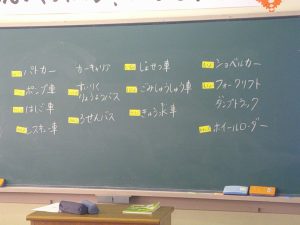 パトカー
ポンプ車
はしご車
レスキュー車
カーキャリア
すいりく
りょうようバス
ろせんバス
じょせつ車
ごみしゅうしゅう車
きゅう水車
ショベルカー
フォークリフト
ダンプトラック
ホイールローダー